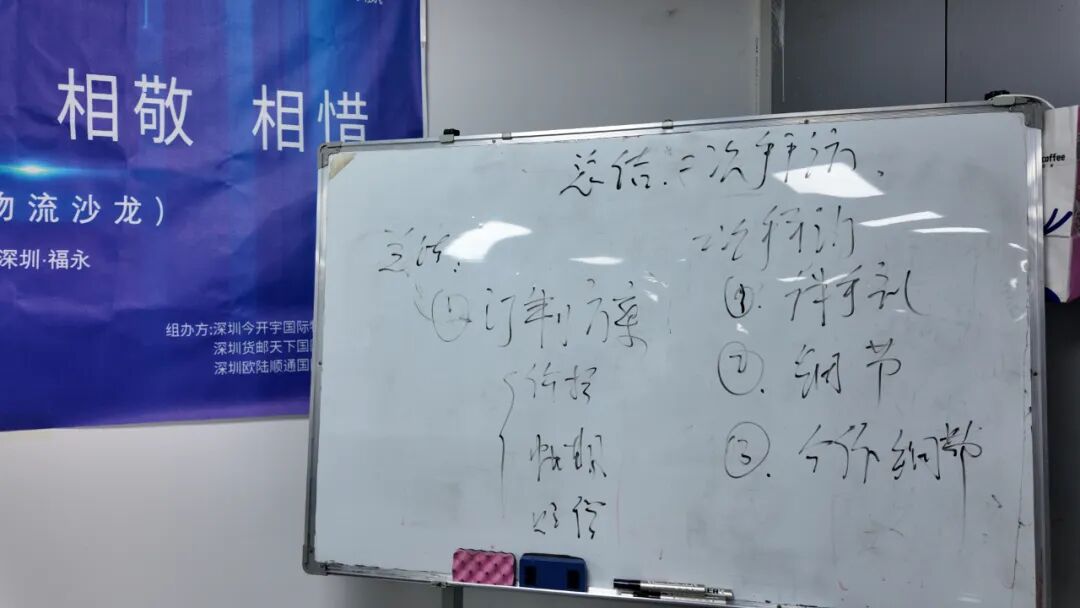 相敬 相惜
物流沙龙）
深圳·福永
组办方:深圳今开宇国际
深圳货邮天下国
深圳欧陆顺通国
总结、二次拜访、
总结:
① 订制方案
价格
时效
赔偿
二次拜访
①. 伴手礼
②. 细节
③. 合作细节
coffee